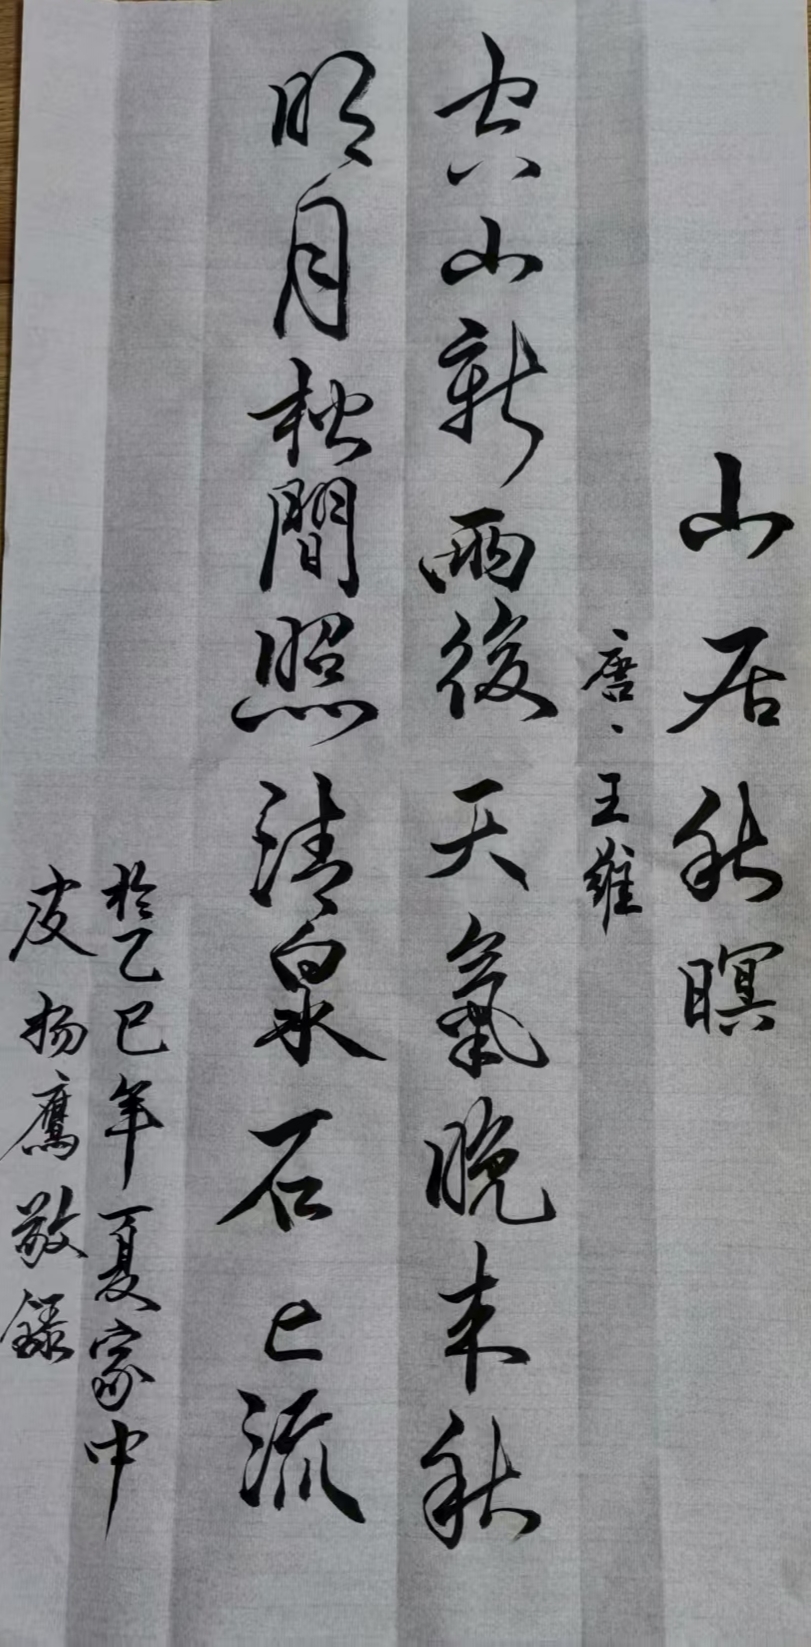 山居秋暝
唐、王維
空山新雨後天氣晚来秋
明月松間照清泉石上流
於乙巳年夏家中
皮杨鹰敬録